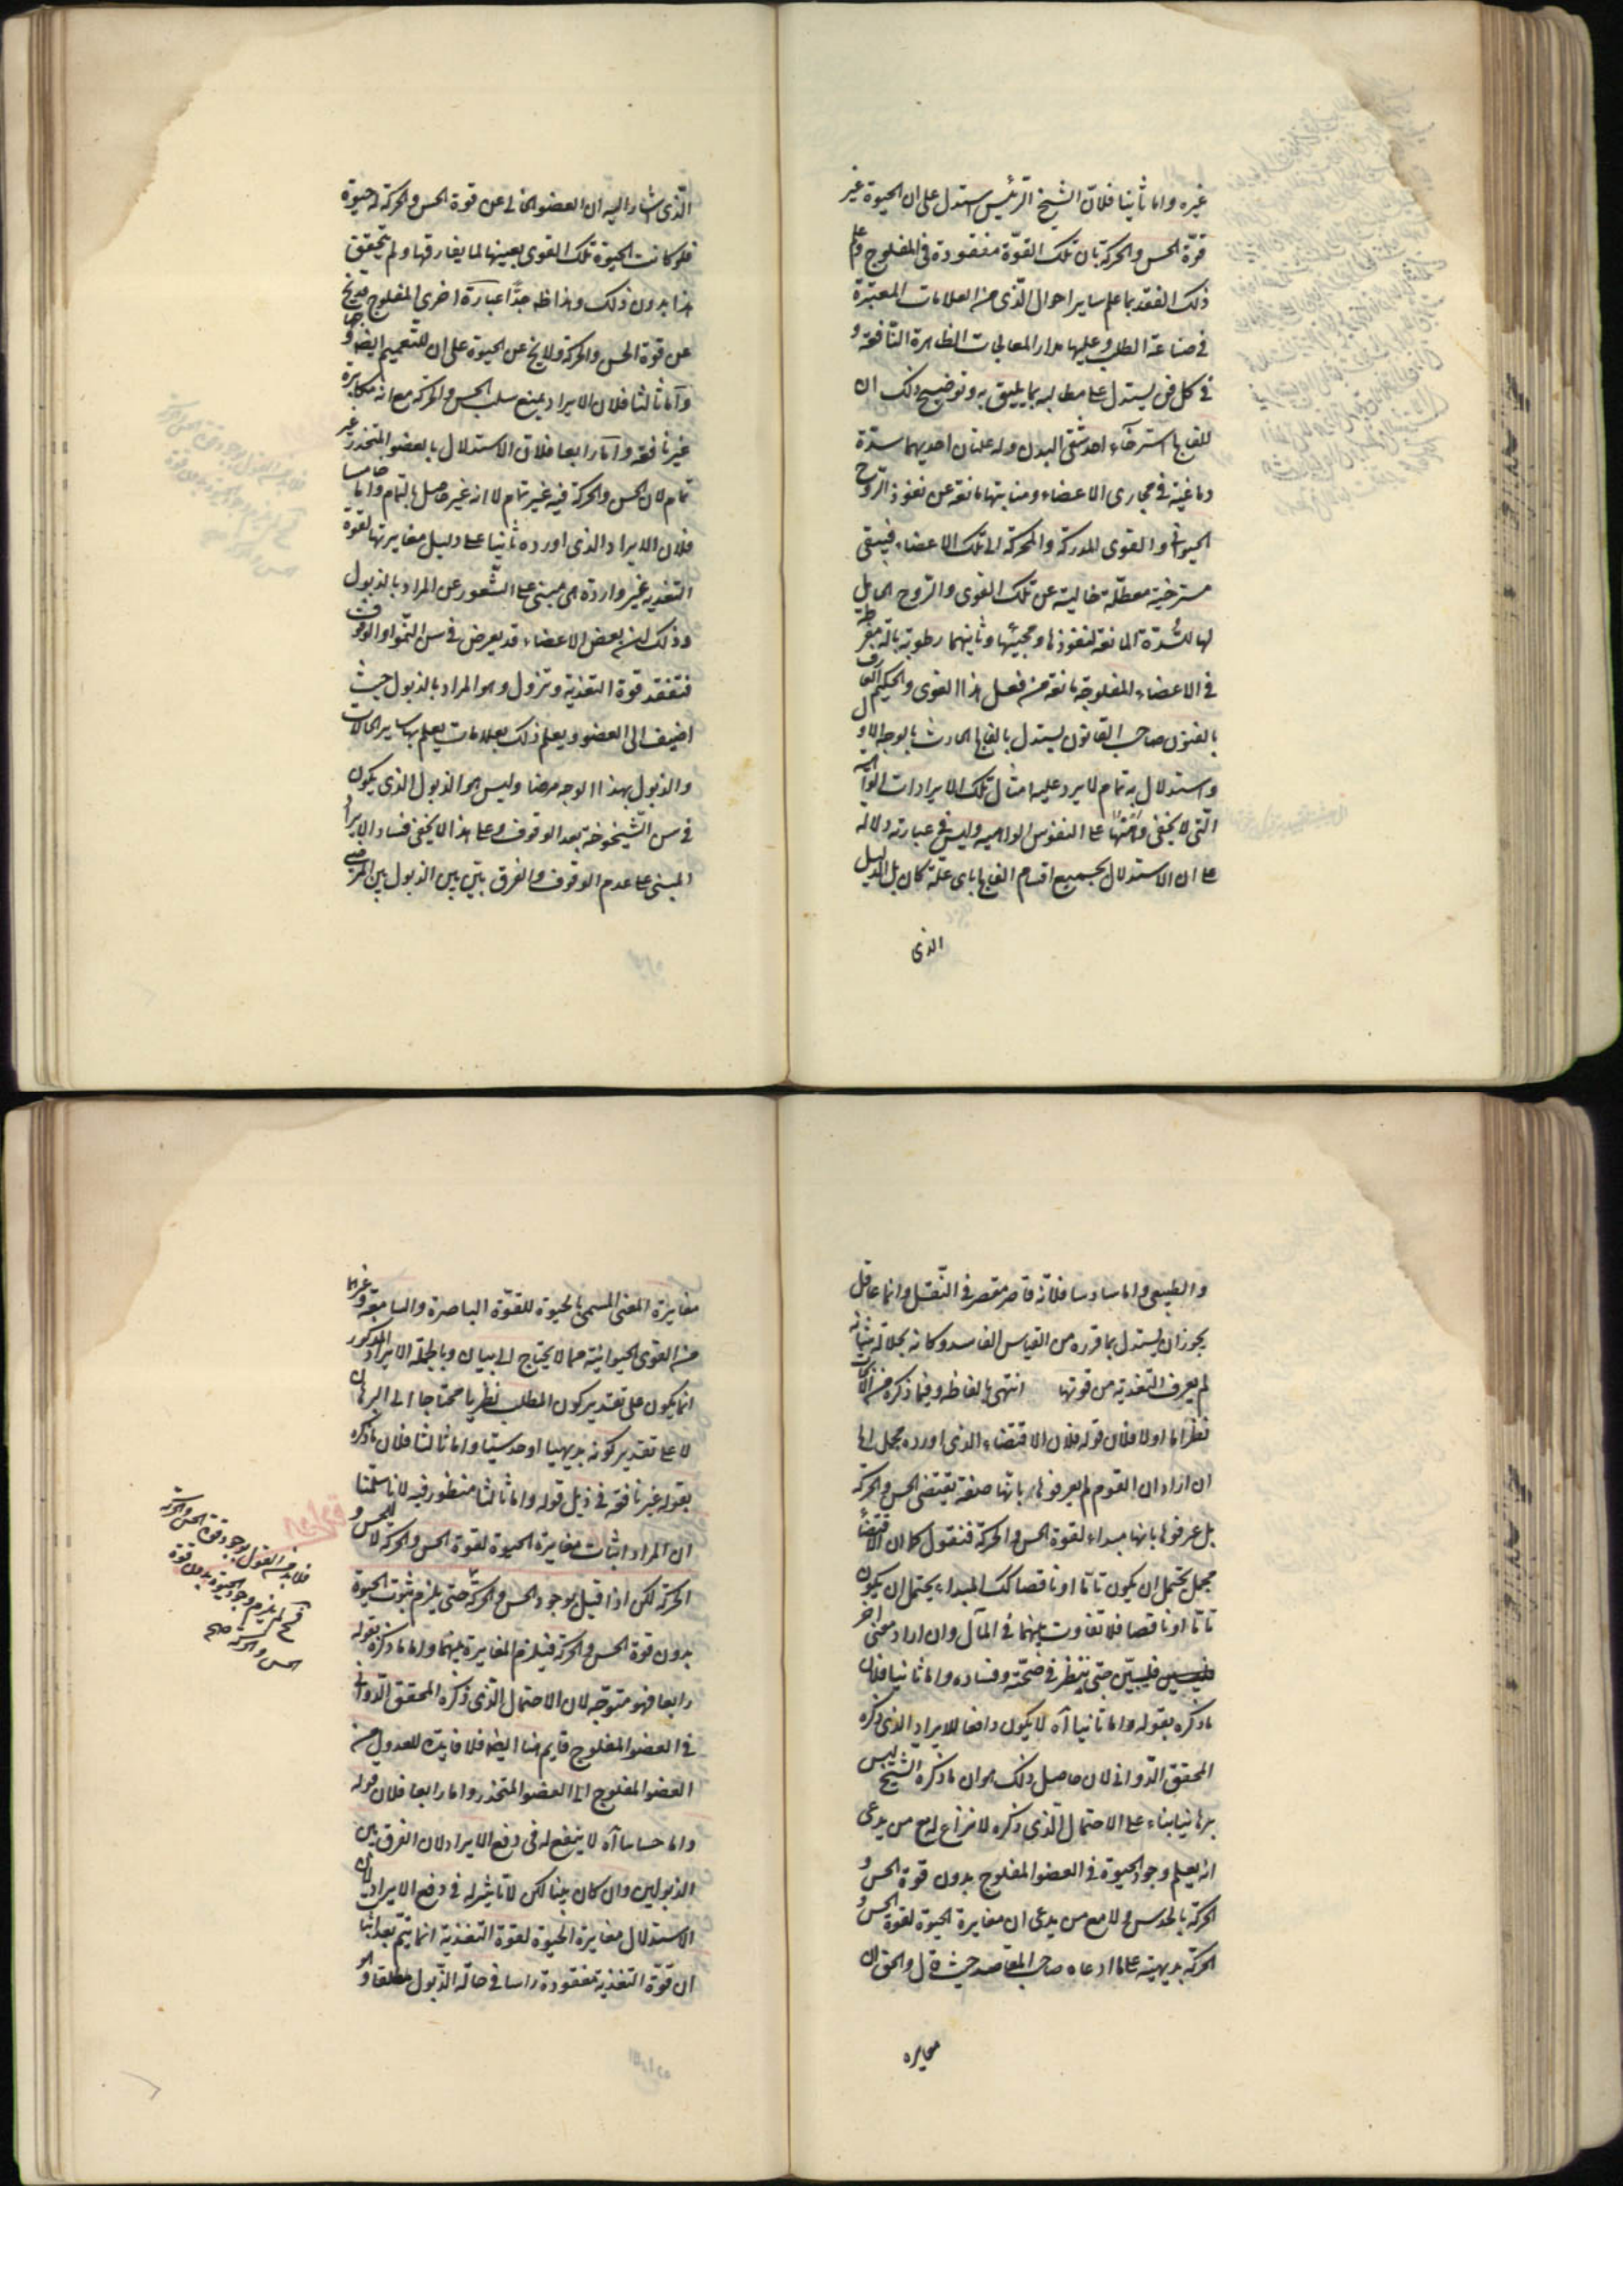 غيره واما ثانيا فلان الشيخ الرئيس استدل على ان الحيوة غير
قوة الحس والحركة بان تلك القوة مفقودة في المفلوج وعلم
ذلك الفقد بما علم ساير احوال الذى من العلامات المعتبرة
في صناعة الطب وعليها مدار المعالجات الظاهرة النافعة و
في كل فن يستدل على مطالبه بما يليق به وتوضيح ذلك ان
للفالج استرخاء احد شقى البدن وله علتان احديهما سدة
دماغية في مجارى الاعضاء ومنابتها مانعة عن نفوذ الروح
الحيوانى والقوى المدركة والمحركة الى تلك الاعضاء فيبقى
مسترخية معطلة خالية عن تلك القوى والروح الحامل
لها للسدة المانعة لنفوذها ومجيئها وثانيهما رطوبة بالة مفرطة
في الاعضاء المفلوجة مانعة من فعل هذا القوى والحكيم العارف
بالفنون صاحب القانون يستدل بالفالج الحادث بالوجه الاول
واستدلال به تمام لا يرد عليه امثال تلك الايرادات الواهية
التى لا يخفى وهنها على النفوس الواهيه وليس في عبارته دلالة
على ان الاستدلال بجميع اقسام الفالج باى علة كان بل الدليل
الذى
الذى اشار اليه ان العضو الخالى عن قوة الحس والحركة له حيوة
فلو كانت الحيوة تلك القوى بعينها لما يفارقها ولم يتحقق
هذا بدون ذلك وهذا ظه جدا عبارة اخرى المفلوج قد يخ
عن قوة الحس والحركة ولا يخ عن الحيوة على ان للتعميم ايضه وجها
واما ثالثا فلان الايراد بمنع سلب الحس والحركة مع انه مكابرة
غير نافعة واما رابعا فلان الاستدلال بالعضو المتخدر غير
تمام لان الحس والحركة فيه غير تمام لا انه غير حاصل بالتمام واما خامسا
فلان الايراد الذى اورده ثانيا على دليل مغايرتها لقوة
التغذيه غير واردة هى مبنى على الشعور عن المراد بالذبول
وذلك ان بعض الاعضاء قد يعرض في سن النمو او الوقوف
فتفقد قوة التغذية وتزول وهو المراد بالذبول حيث
اضيف الى العضو ويعلم ذلك بعلامات يعلم بها ساير الحالات
والذبول بهذا الوجه مرضا وليس هو الذبول الذى يكون
في سن الشيخوخة بعد الوقوف وعلى هذا لا يخفى فساد الايراد
المبنى على عدم الوقوف والفرق بين بين الذبول بين المرضى
والطبيعى واما سادسا فلانه قاصر مقصر في النقل وانما عاقل
يجوز ان يستدل بما قرره من القياس الفاسد وكانه بجلالة شانه
لم يعرف التغذية من قوتها انتهى بالفاظه وفيما ذكره من الاثار
نظر اما اولا فلان قوله فلان الاقتضاء الذى اورده مجمل اها
ان اراد ان القوم لم يعرفوها بانها صفة يقتضى الحس والحركة
بل عرفوها بانها مبداء لقوة الحس والحركة فنقول كما ان الاقتضاء
مجمل يحتمل ان يكون تاما او ناقصا كك المبداء يحتمل ان يكون
تاما او ناقصا فلا تفاوت بينهما في المآل وان اراد معنى اخر
فليبين حتى ينظر في صحته وفساده واما ثانيا فلان
ما ذكره بقوله واما ثانيا اه لا يكون دافعا للايراد الذى ذكره
المحقق الدوانى لان حاصل ذلك هو ان ما ذكره الشيخ ليس
برهانيا بناء على الاحتمال الذى ذكره لا نزاع له مع من يدعى
انه يعلم وجود الحيوة في العضو المفلوج بدون قوة الحس و
الحركة بالحدس ولا مع من يدعى ان مغايرة الحيوة لقوة الحس و
الحركة بديهية على ما ادعاه صاحب المقاصد حيث قال والحق ان
مغايره
مغايرة المعنى المسمى بالحيوة للقوة الباصرة والسامعة وغيرهما
من القوى الحيوانية مما لا يحتاج الى بيان وبالجملة الايراد المذكور
انما يكون على تقدير كون المطلب نظريا محتاجا الى البرهان
لا على تقدير كونه بديهيا او حدسيا واما ثالثا فلان ما ذكره
بقوله غير نافعة في ذيل قوله واما ثالثا منظور فيه لانا سلمنا
ان المراد اثبات مغايرة الحيوة لقوة الحس والحركة لا الحس و
الحركة لكن اذا قيل بوجود الحس والحركة حتى يلزم ثبوت الحيوة
بدون قوة الحس والحركة فيلزم المغايرة بينهما واما ما ذكره بقوله
رابعا فهو متوجه لان الاحتمال الذى ذكره المحقق الدوانى
في العضو المفلوج قايم هنا ايضه فلا فايدة للعدول من
العضو المفلوج الى العضو المتخدر واما رابعا فلان قوله
واما خامسا اه لا ينفع له في دفع الايراد لان الفرق بين
الذبولين وان كان بينا لكن لا تاثير له في دفع الايراد لان
الاستدلال مغايرة الحيوة لقوة التغذية انما يتم بعد اثبات
ان قوة التغذية مفقودة راسا في حالة الذبول مطلقا وهو
فلا بد من القول بوجود قوة الحس والحركة
فح لم يلزم وجود الحيوة بدون قوة
الحس والحركة صح